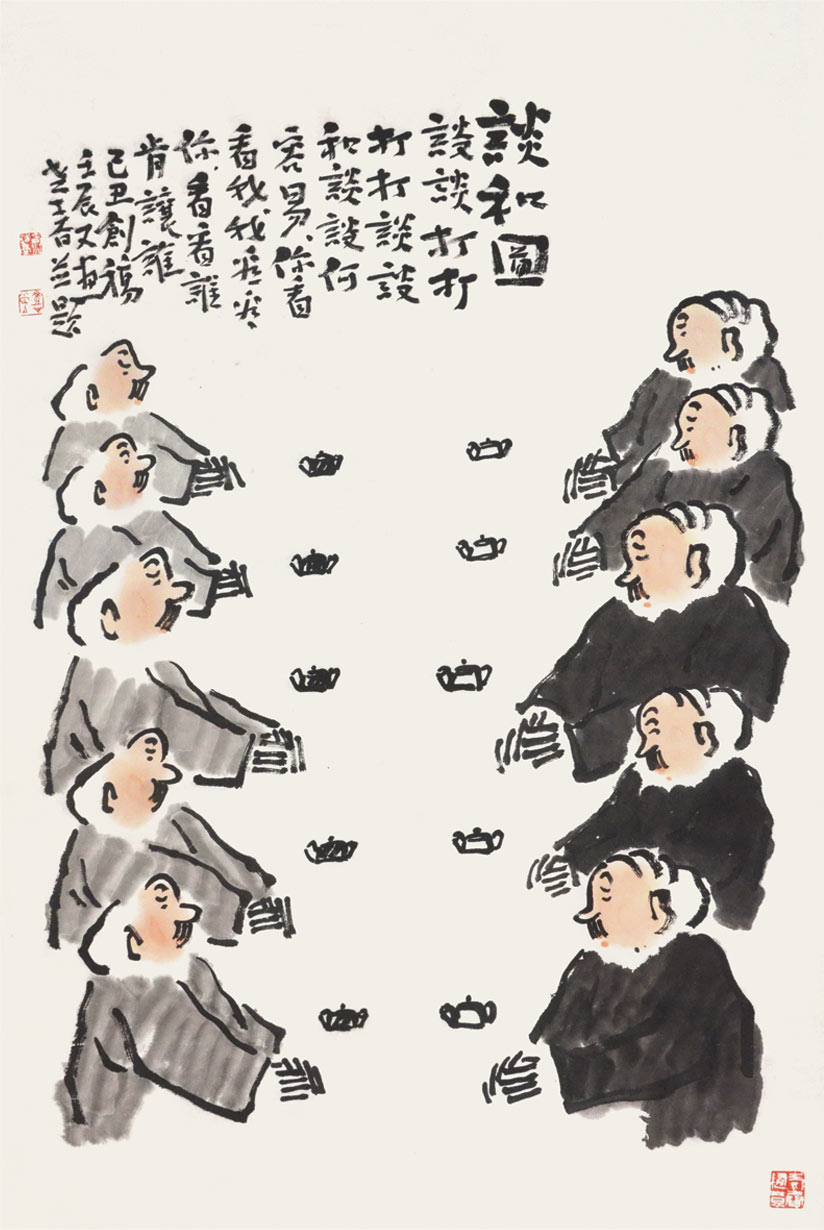 談和圖
談談打打
打打談談
和談談何
容易你看
看我我看看
你看看誰
肯讓誰
己丑創稿
壬辰又畫
並題